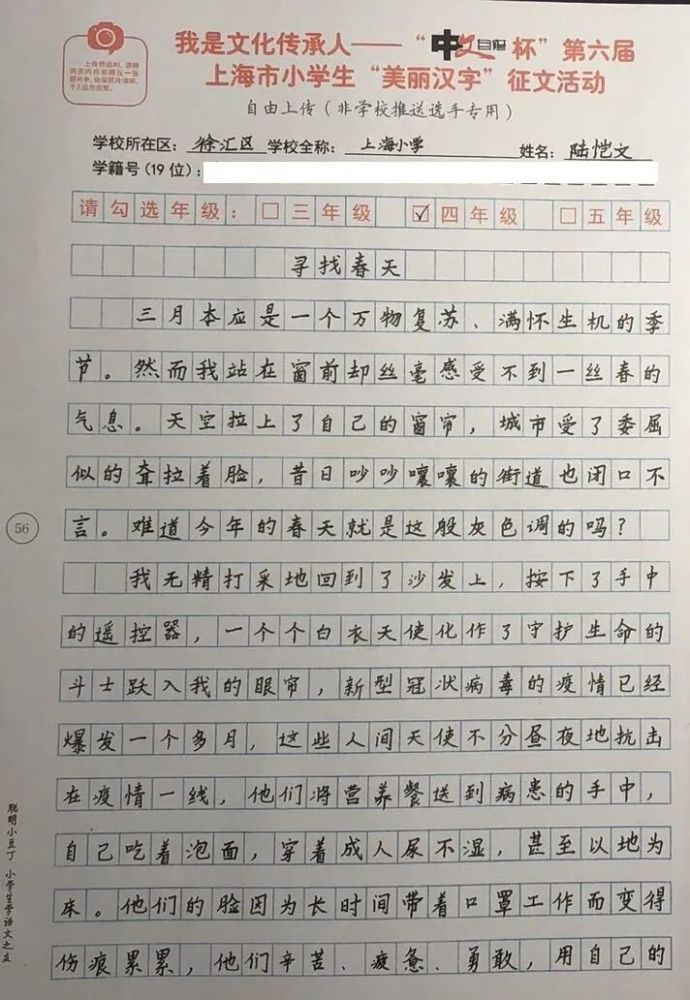 上传作品时，请将
两页内容拍摄在一张
照片中，确保照片清晰、
个人信息完整。
我是文化传承人——“中文自修杯”第六届
上海市小学生“美丽汉字”征文活动
自由上传（非学校推送选手专用）
学校所在区：徐汇区 学校全称：上海小学 姓名：陆恺文
学籍号（19位）：
请勾选年级：□三年级 ☑四年级 □五年级
寻找春天
三月本应是一个万物复苏、满怀生机的季
节。然而我站在窗前却丝毫感受不到一丝春的
气息。天空拉上了自己的窗帘，城市受了委屈
似的耷拉着脸，昔日吵吵嚷嚷的街道也闭口不
言。难道今年的春天就是这般灰色调的吗？
我无精打采地回到了沙发上，按下了手中
的遥控器，一个个白衣天使化作了守护生命的
斗士跃入我的眼帘，新型冠状病毒的疫情已经
爆发一个多月，这些人间天使不分昼夜地抗击
在疫情一线，他们将营养餐送到病患的手中，
自己吃着泡面，穿着成人尿不湿，甚至以地为
床。他们的脸因为长时间带着口罩工作而变得
伤痕累累，他们辛苦、疲惫、勇敢，用自己的
56
聪明小豆丁 小学生学语文之友